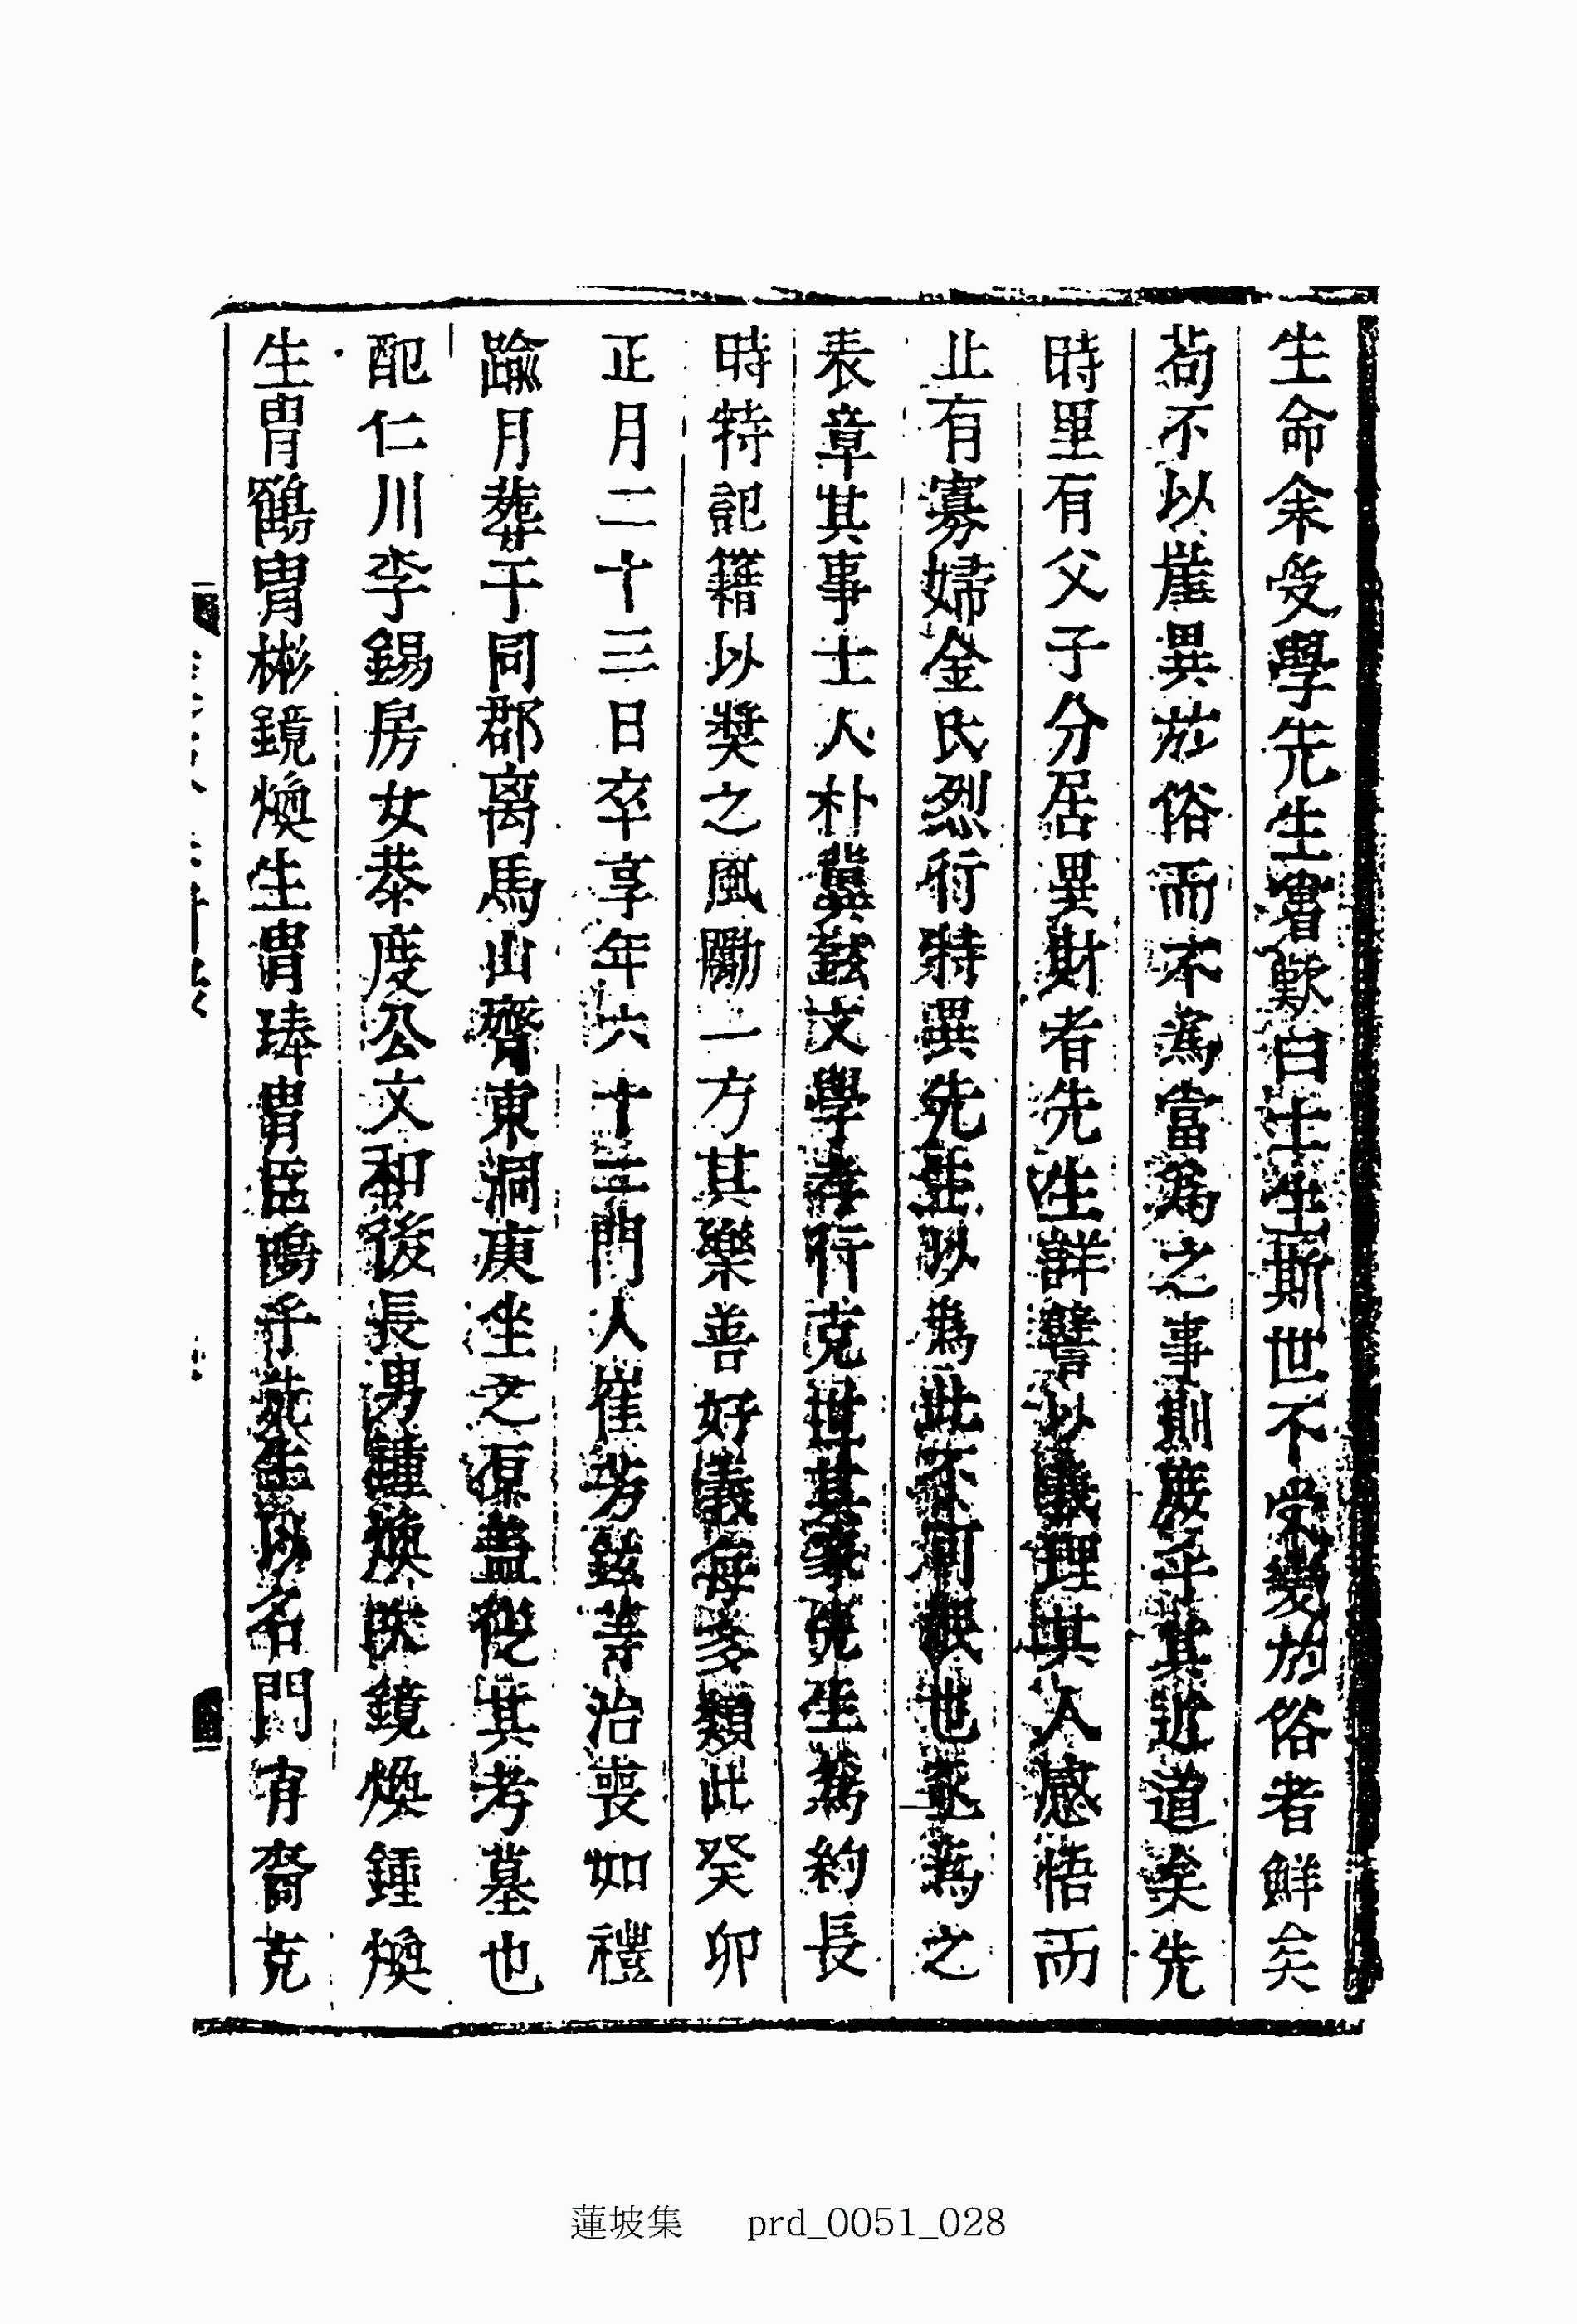 生命余受學先生嘗歎曰士生斯世不受變於俗者鮮矣
苟不以崖異於俗而不爲當爲之事則庶乎其近道矣先
時里有父子分居異財者先生詳譬以義理其人感悟而
止有寡婦金氏烈行特異先生以爲此不可泯也遂爲之
表章其事士人朴冀鉉文學孝行克世其家先生爲約長
時特記籍以奬之風勵一方其樂善好義每多類此癸卯
正月二十三日卒享年六十三門人崔芳鉉等治喪如禮
踰月葬于同郡离馬山齊東洞庚坐之原盖從其考墓也
配仁川李錫房女恭度公文和後長男鍾煥次鏡煥鍾煥
生冑鶴冑彬鏡煥生冑琫冑 嗚乎 生以名門冑裔克
蓮坡集 prd_0051_028